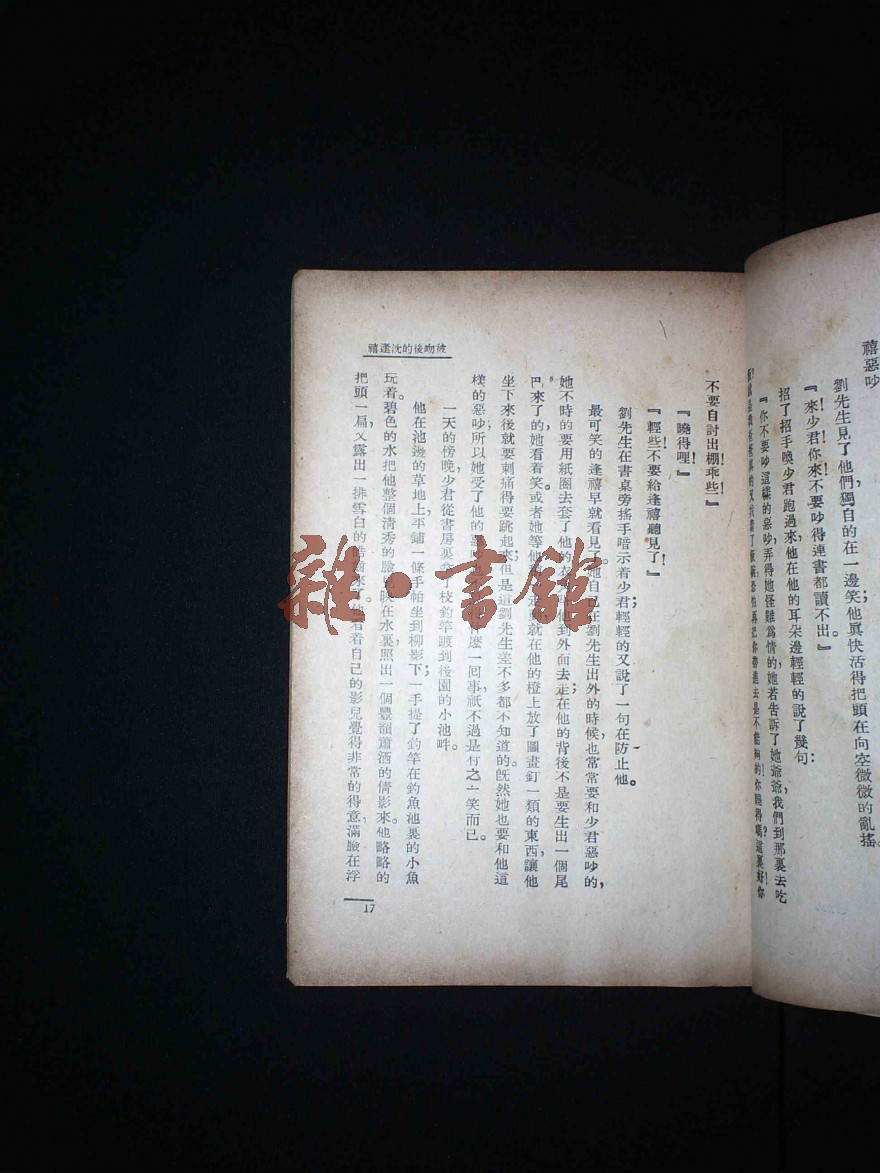 禧惡吵
劉先生見了他們獨自的在一邊笑他眞快活得把頭在向空微微的亂搖。
『來！少君！你來不要吵得連書都讀不出。』
招了招手喚少君跑過來，他在他的耳朵邊輕輕的說了幾句：
『你不要吵這樣的惡吵，弄得她怪難爲情的，她若告訴了她爺爺，我們到那裏去吃
再把你帶進去是不能夠的！你曉得嗎？這裏好！你
不要自討出棚！乖些！』
『曉得哩！』
『輕些！不要給逢禧聽見了！』
劉先生在書桌旁搖手暗示着少君；輕輕的又說了一句在防止他。
最可笑的逢禧早就看見了。她自己在劉先生出外的時候，也常常要和少君惡吵的，
她不時的要用紙圈去套了他的衣 他到外面去走在他的背後不是要生出一個尾
巴來了的，她看着笑或者她等他 走 就在他的橙上放了圖畫釘一類的東西，讓他
坐下來後就要刺痛得要跳起來；但是這劉先生差不多都不知道的。旣然她也要和他這
樣的惡吵，所以她受了他的惡 麽一回事，祇不過是付之一笑而已。
一天的傍晚，少君從書房裏拿了枝釣竿踱到後園的小池畔。
他在池邊的草地上，平鋪一條手帕坐到柳影下；一手提了釣竿在釣魚池裏的小魚
玩着。碧色的水把他整個清秀的臉兒映在水裏；照出一個豐韻蕭洒的倩影來。他略略的
把頭一扁，又露出一排雪白的皓齒來了。他看着自己的影兒覺得非常的得意，滿臉在浮
被吻後的沈逢禧
17
雜·書館